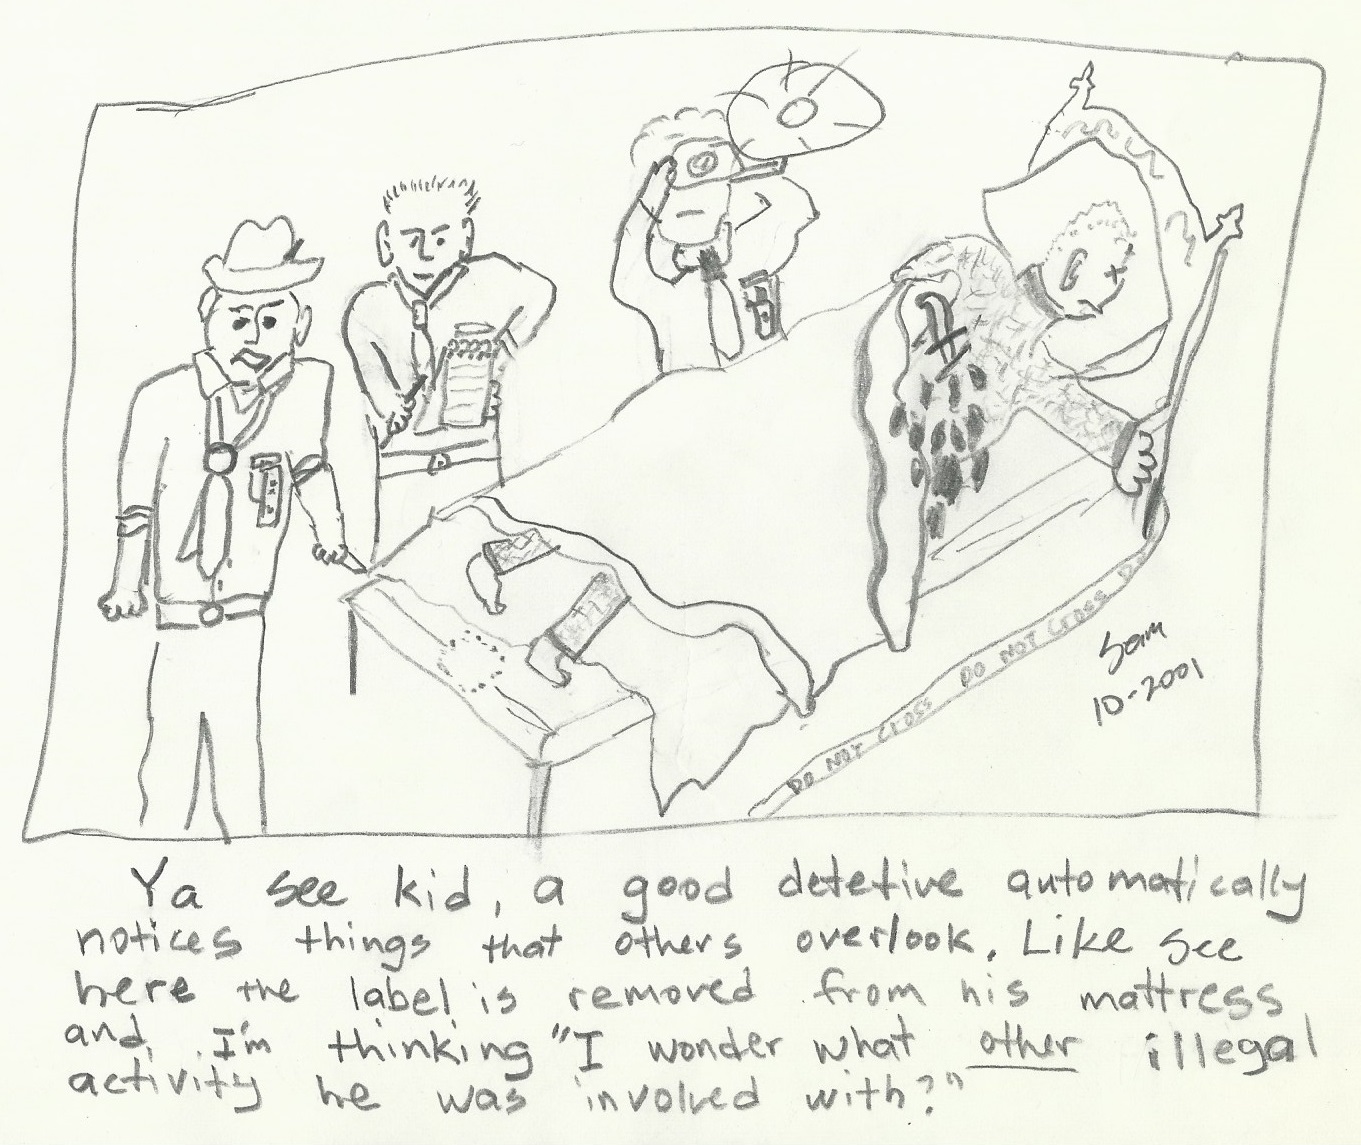 DO NOT CROSS DO NOT CROSS DO
Sam
10-2001
Ya see kid, a good detetive automatically
notices things that others overlook. Like see
here the label is removed from his mattress
and I'm thinking "I wonder what other illegal
activity he was involved with?"